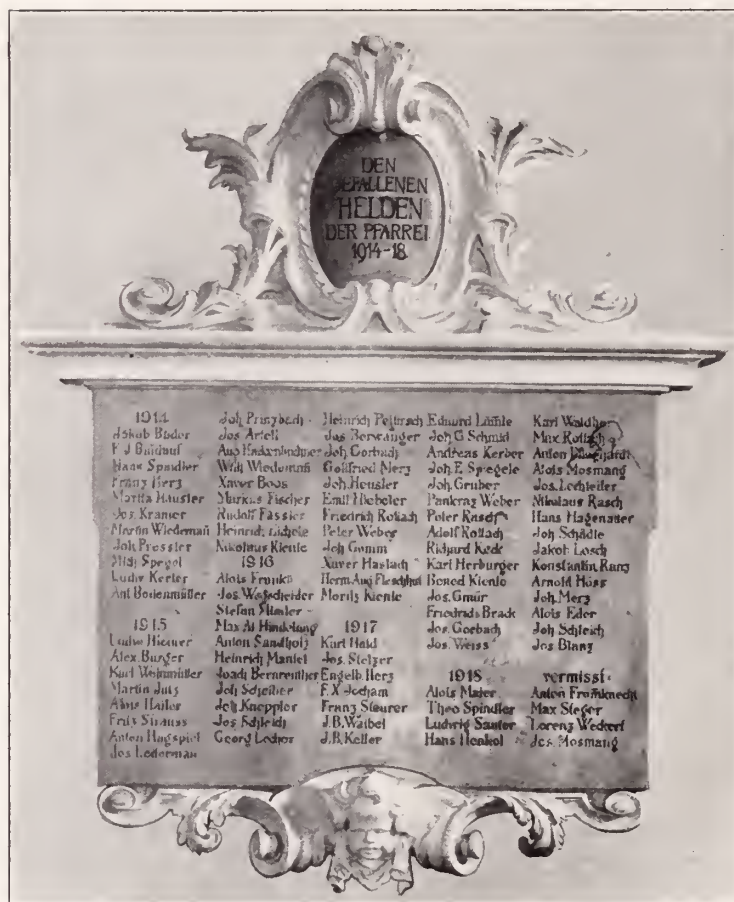 DEN
GEFALLENEN
HELDEN
DER PFARREI
1914-18
1914
Jakob Bader
F J Baldauf
Hans Spindler
Franz Herz
Martin Häusler
Jos. Kramer
Martin Wiedemañ
Joh Pressler
Mich Spegel
Ludw Kerler
Ant Bodenmüller
1915
Ludw Hiemer
Alex. Burger
Karl Weinmüller
Martin Jutz
Alois Haller
Fritz Strauss
Anton Hugspiel
Jos. Lederman
Joh Prinzbach
Jos Artelt
Aug
Willi Wiedemañ
Xaver Boos
Markus Fischer
Rudolf Fässler
Heinrich Eichele
Nikolaus Kienle
1916
Alois Frank
Jos Wegscheider
Stefan
Max Al Hindelang
Anton Sandholz
Heinrich Mantel
Joach Bernreuther
Joh Scheiber
Joh Kneppler
Jos Schleich
Georg Locher
Heinrich
Jos Berwanger
Joh Gorbach
Gottfried Merz
Joh. Heusler
Emil Hiebeler
Friedrich Rottach
Peter Weber
Joh Gomm
Xaver Haslach
Herm. Aug
Moritz Kienle
1917
Kurt Hold
Jos. Stelzer
Engelb. Herz
F. X Jocham
Franz Steurer
J. B. Waibel
J. B. Keller
Eduard
Joh G Schmid
Andreas Kerber
Joh. E Spiegele
Joh. Gruber
Pankraz Weber
Peter Rasch
Adolf Rottach
Richard Keck
Karl Herburger
Bened Kienle
Jos. Gmür
Friedrich Brack
Jos. Gorbach
Jos. Weiss
1918
Alois Maier
Theo Spindler
Ludwig Sauter
Hans Henkel
Karl
Max Rottach
Anton
Alois Mosmang
Jos. Lechleiter
Nikolaus Rasch
Hans Hagenauer
Joh Schädle
Jakob Losch
Konstantin Ranz
Arnold Huss
Joh. Merz
Alois Eder
Joh Schleich
Jos Blanz
vermisst:
Anton Fromknecht
Max Steger
Lorenz Weckerl
Jos. Mosmang